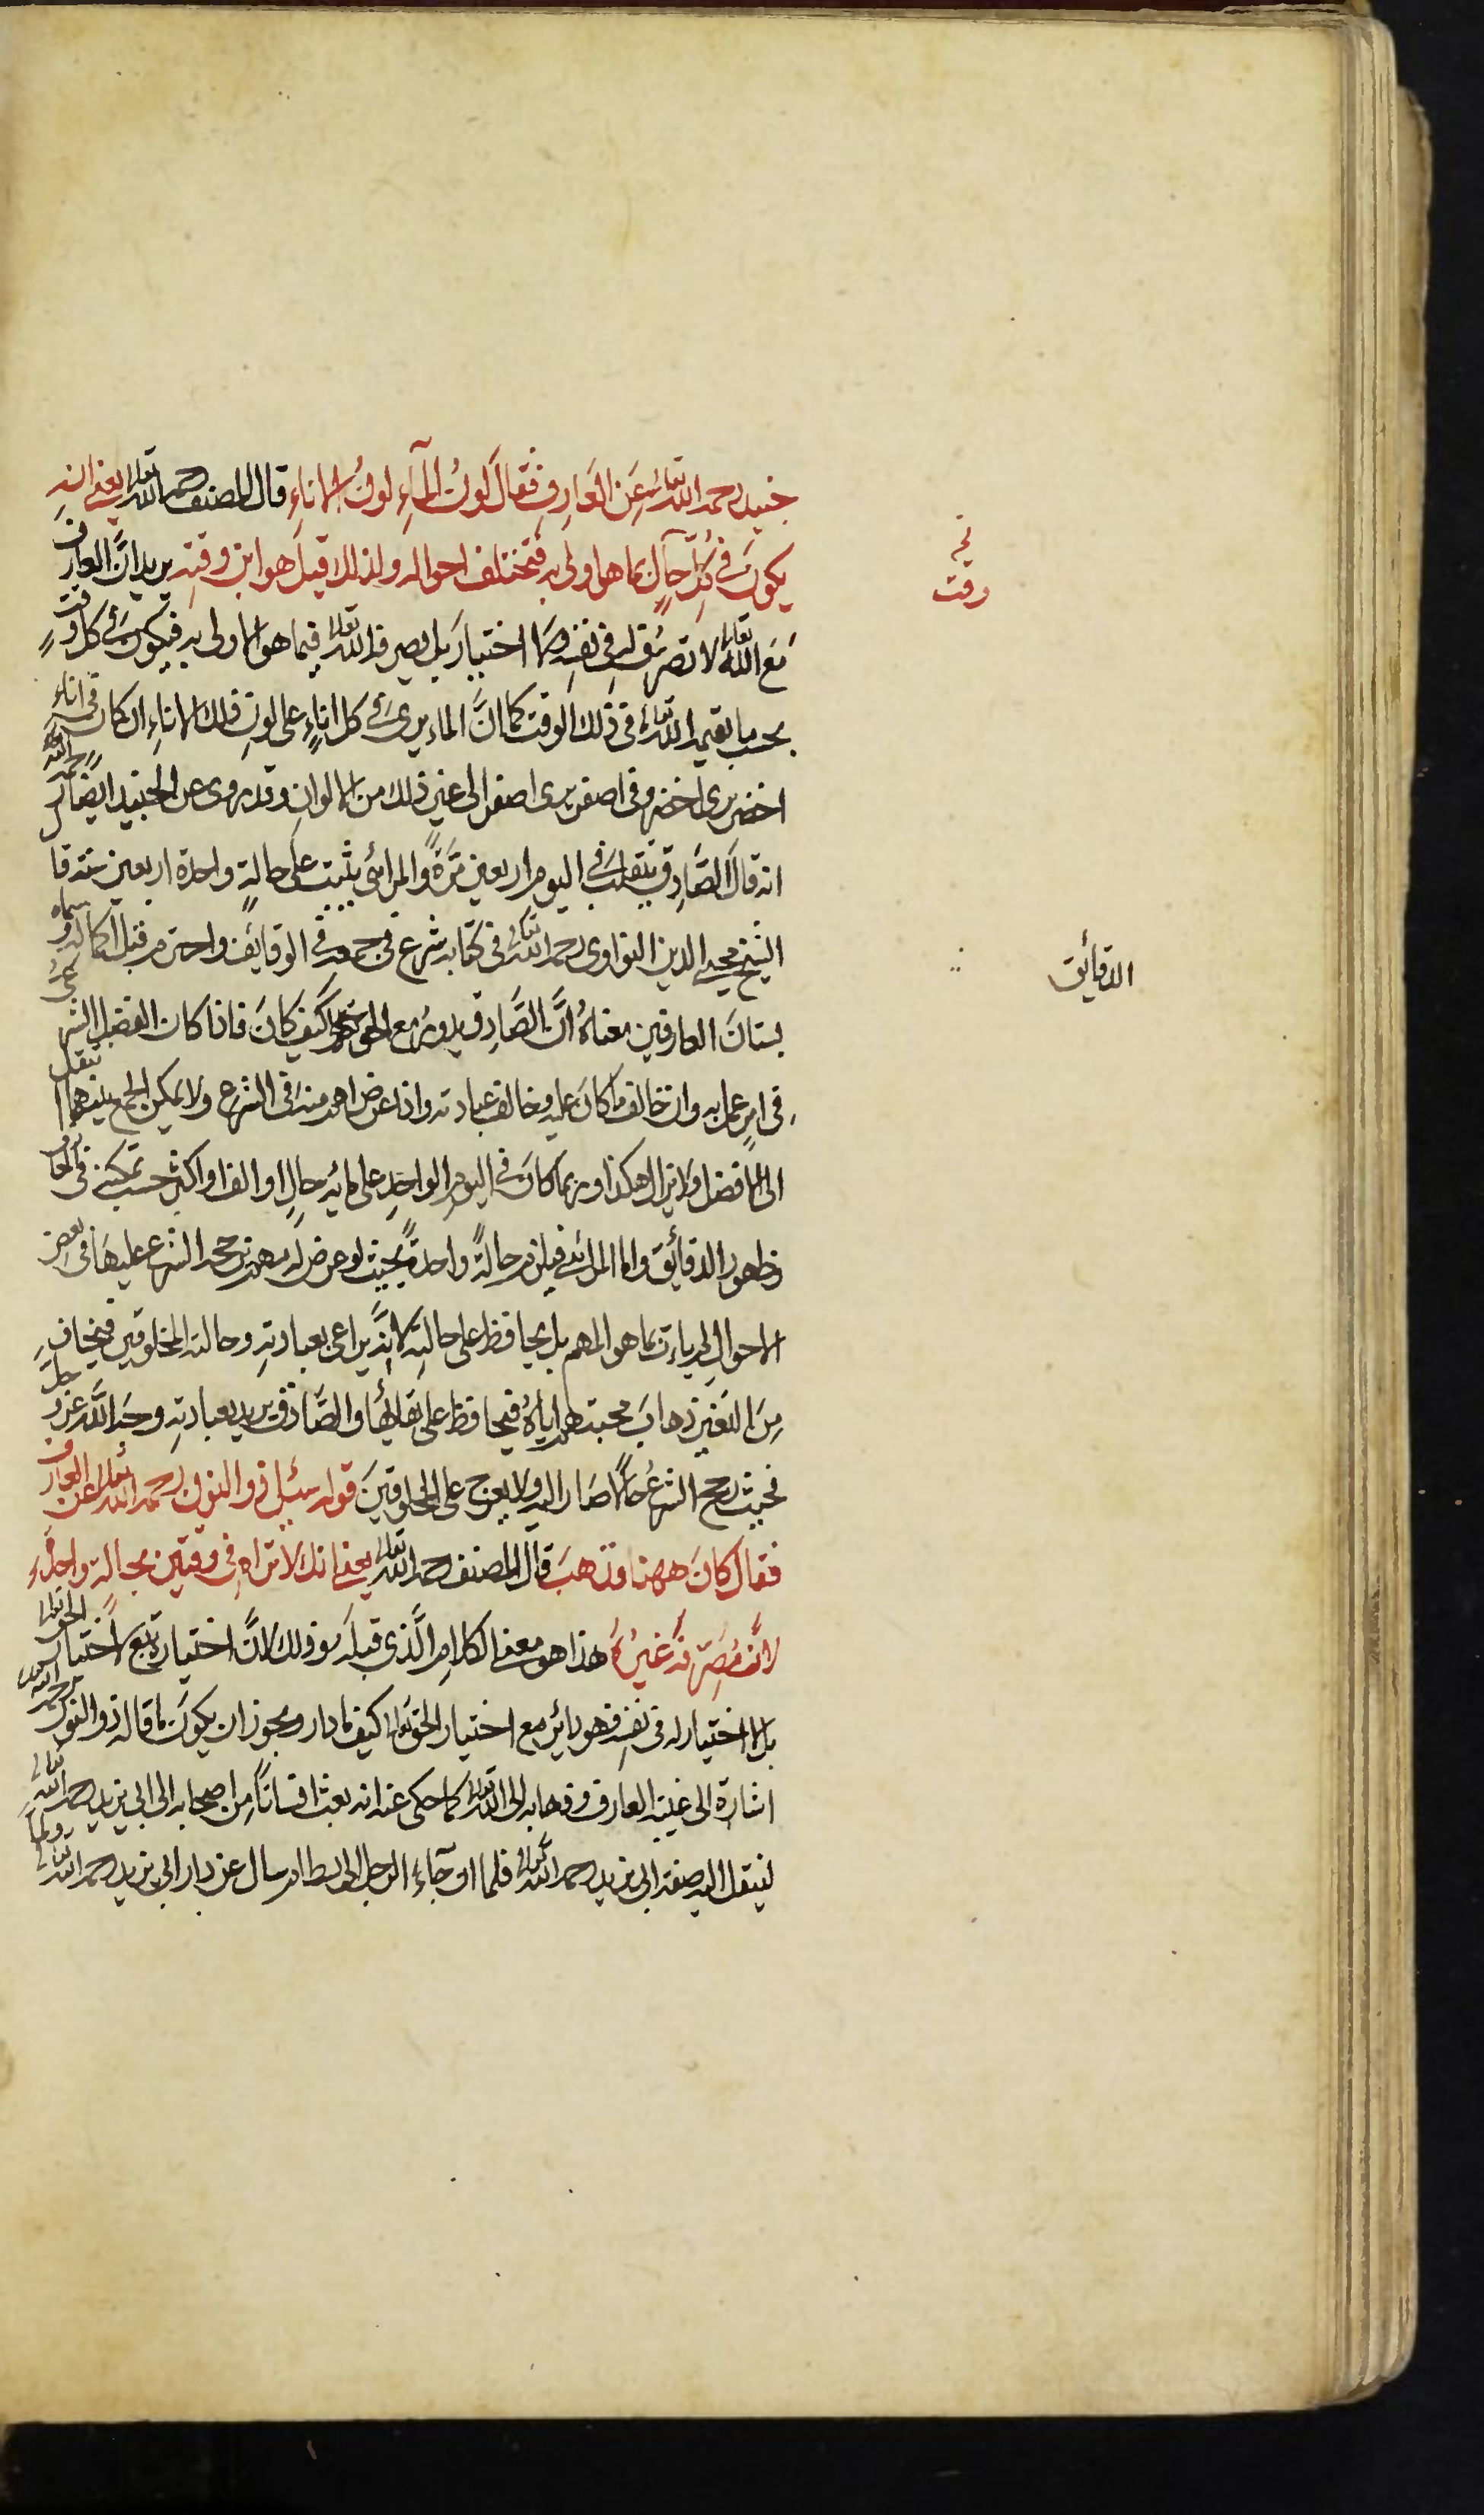 جنيد رحمه الله تعالى عن العَارِف فقَالَ لَونُ المآءِ لونُ الاناءِ قال المصنف رحمه الله تعالى يعني انه
يكونَ في كلِّ حالٍ بما هو اولى به فتختلف احواله ولذلك قيلَ هو ابن وقتهِ يريد انَّ العارف
مَعَ الله تعالى لا تصرفَ له في نفسِه ولا اختيارَ بل يصرفه الله تعالى فيما هو الاولى به فيكونُ في كل وقت
بحسب ما يقيمه الله تعالى في ذلك الوقت كما انَّ الماء يرىَ في كل اناءٍ على لونِ ذلك الاناءِ ان كان في اناءِ
اخضر يرى اخضر وفي اصفر يرى اصفر الى غير ذلك من الالوانِ وقد روى عن الجنيد ايضًا رحمه الله
انه قالَ الصَّادِق يتقلبُ في اليوم اربعين مَرةً والمرائي يثبت على حالةٍ واحدة اربعين سنة قا
الشيخ محيي الدين النواوى رحمه الله تعالى في كتابه شرع في جمعه في الوقايق واحترم قبل اكماله وسماه
بستانَ العارفين معناهُ انَّ الصَّادِق يدورُ مع الحق كيف كانَ فاذا كان الفضل الشرعيُّ
في امرٍ عمل به وان خالف ما كانَ عليه وخالف عبادته واذا عرض اهم منه في الشرع ولا يمكن الجمع بينهما انتقل
الى الافضل ولا يزال هكذا وربما كانَ في اليومِ الواحِدِ على مائة حالٍ او الف او اكثر حسب تمكنه في المعارف
وظهور الدقائق واما المرائي فيلزم حالةً واحدةً بحيث لو عرض له مهم يرجحه الشرع عليها في بعض
الاحوالِ لم يات بما هو المهم بل يحافظ على حالتِه لانَّه يراعى بعبادتهِ وحالته المخلوقين فيخافِ
مِنَ التغير ذهابَ محبتهم اياهُ فيحافظ على بقائها والصَّادق يريد بعبادتهِ وجهَ الله عز وجلَّ
فحيث رجح الشرعُ حالًا صَار اليه ولا يعرج على المخلوقينَ قوله سئل ذو النون رحمه الله تعالى عن العارف
فقال كانَ ههنا فذهبَ قالَ المصنف رحمه الله تعالى يعني انك لا تراه في وقتين بحالة واحدة
لانَّ مُصَرِّفَه غيرُهُ هذا هو معنى الكلامِ الَّذي قبله وذلك لانَّ اختياره تبع لاختيار الحق تعالى
بل لا اختيار له في نفسه فهو دائر مع اختيار الحق تعالى كيف ما دار ويجوز ان يكونَ ما قاله ذو النون رحمه الله
اشارة الى غيبة العارف وذهابه الى الله تعالى كما حكى عنه انه بعث انسانًا مِن اصحابه الى ابي يزيد رحمه الله تعالى
لينقل اليه صفة ابي يزيد رحمه الله تعالى فلما ان جآءِ الرجل الى بسطام سال عن دار ابي يزيد رحمه الله تعالى ولما
وقت
الدقائق